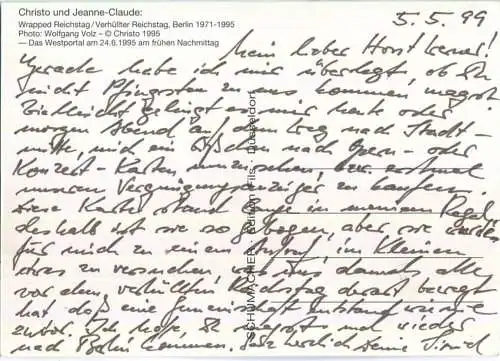 Christo und Jeanne-Claude:
Wrapped Reichstag/Verhüllter Reichstag, Berlin 1971-1995
Photo: Wolfgang Volz – © Christo 1995
— Das Westportal am 24.6.1995 am frühen Nachmittag
5.5.99
Mein lieber Horst
Gerade habe ich mir überlegt, ob Du
nicht Pfingsten zu uns kommen magst.
Vielleicht gelingt es mir heute oder
morgen Abend auf dem Weg nach Stadt-
mitte, mich ein bißchen nach Opern- oder
Konzert-Karten umzusehen, bzw. erstmal
unseren Vergnügungsanzeiger zu kaufen.
Diese Karte stand lange in meinem Regal,
deshalb ist sie so gebogen, aber sie wurde
für mich zu einem Aufruf, im Kleinen
etwas zu versuchen, was uns damals alle
vor dem verhüllten Reichstag derart bewegt
hat, daß eine Gemeinschaft entstand wie nie
zuvor. Ich hoffe, Du magst mal wieder
nach Berlin kommen. Sehr herzlich Deine
SCHUMACHER · Edition Fils · Düsseldorf